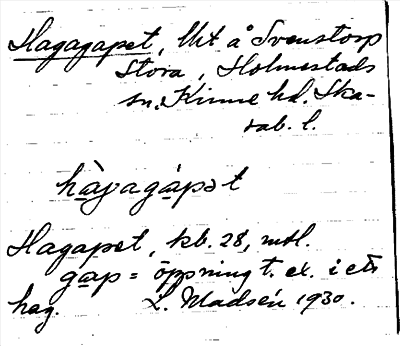 Hagagapet, lht å Svenstorp
Stora, Holmestads
sn, Kinne hd. Ska-
rab. l.
hàgagápət
Hagapet, kb. 28, mtl.
gap = öppning t. ex. i ett
hag. L. Madsén 1930.